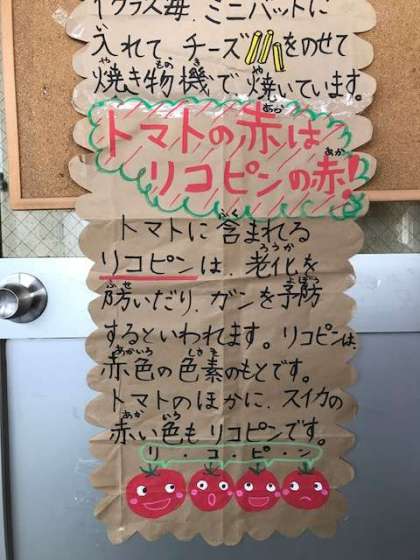 1クラス毎、ミニバットに
入れて チーズをのせて
焼き物機で、焼いています。
トマトの赤は
リコピンの赤!
トマトに含まれる
リコピンは、老化を
防いだり、ガンを予防
するといわれます。リコピンは、
赤色の色素のもとです。
トマトのほかに、スイカの
赤い色もリコピンです。
リ・コ・ピ・ン